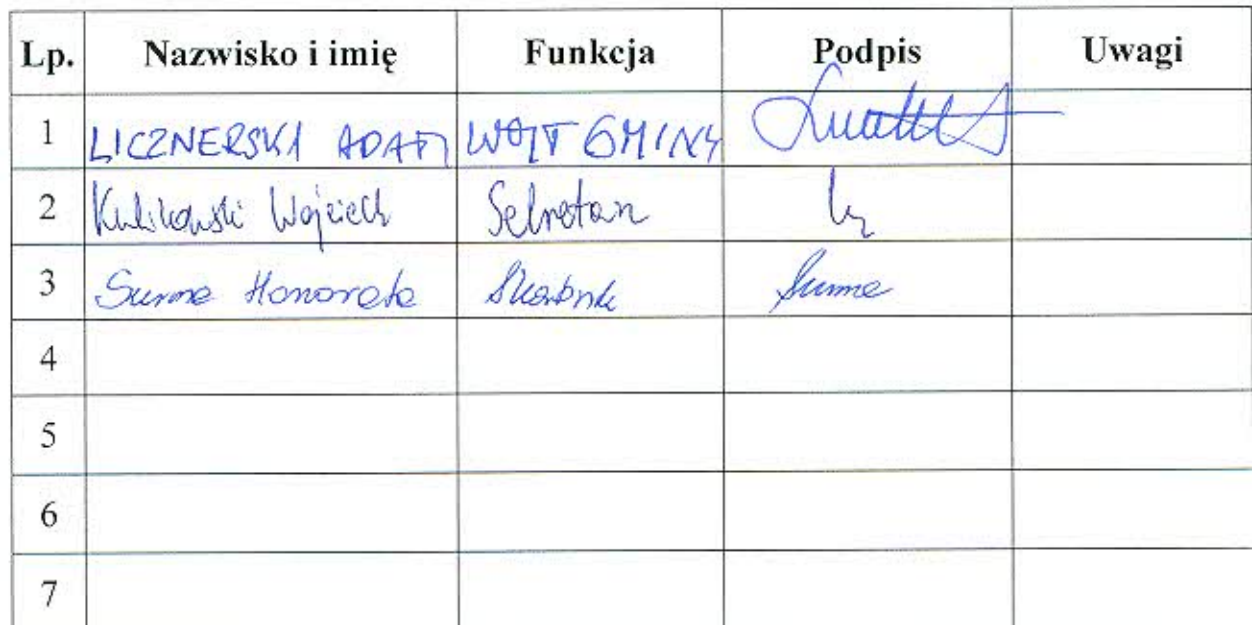 Lp. Nazwisko i imię Funkcja Podpis Uwagi
1 LICZNERSKI ADAM WÓJT GMINY
2 Kulikowski Wojciech Sekretarz
3 Surma Honorata Skarbnik Surma
4
5
6
7